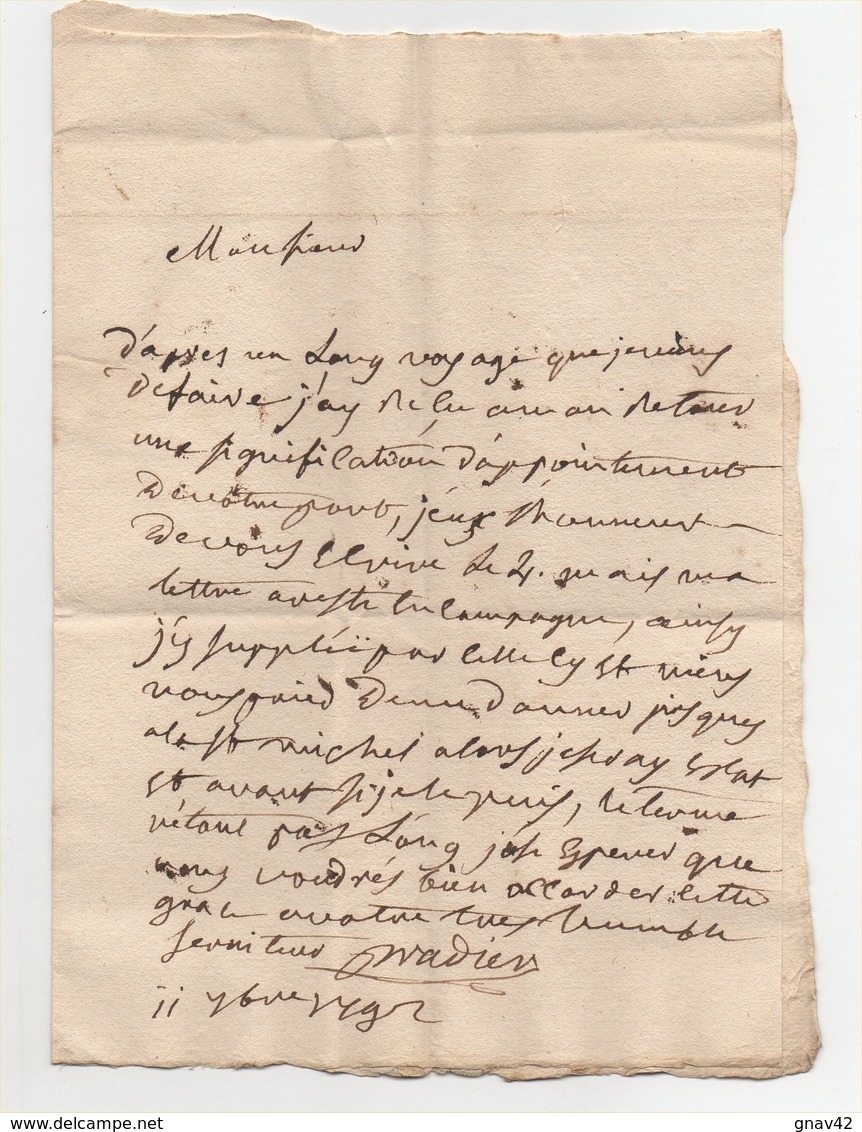 Monsieur
d'apres un Long voyage que je viens
de faire j'ay Recu a mon Retour
une signification d'appointement
De votre part, j'eux l'honneur
De vous Ecrire Le 4. mais ma
lettre a reste En Campagne, ainsy
j'y supplëi par cette Cy Et viens
vous prier De me donner jusques
a la St michel alors je seray Exact
Et avant si je le puis, le terme
n'étant pas Lông j'ose Esperer que
vous voudrés bien accorder cette
grace a votre tres humble
serviteur Pradier
11 7bre 1792
www.delcampe.net
gnav42